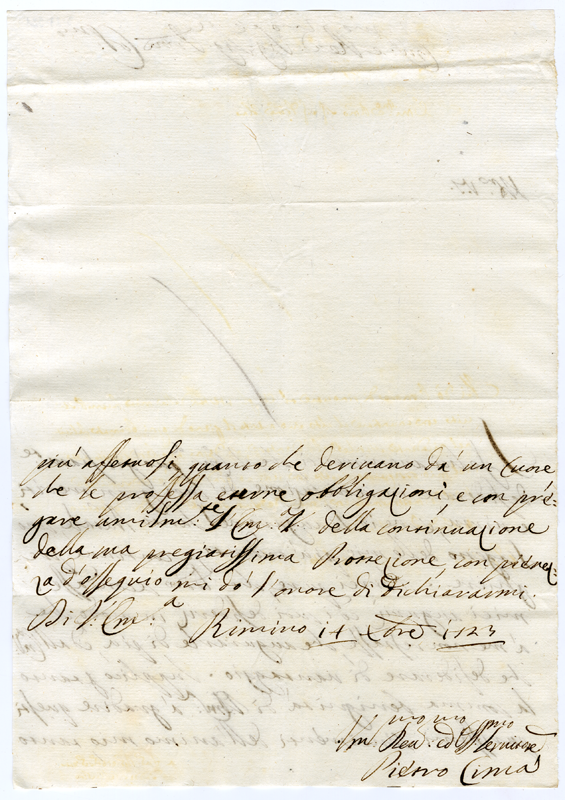 più affettuosi, quanto che derivano da' un Cuore
che le professa eterne obbligazioni, e con pre-
gare umilm.te V. Em.ª V. della continuazione
della sua pregiatissima Protezione, con pienez-
za d'ossequio mi do' l'onore di dichiararmi.
Di V. Em.ª
Rimino 14 Xbre 1723
Um.mo Rev.mo ed Obb.mo Servitore
Pietro Cima